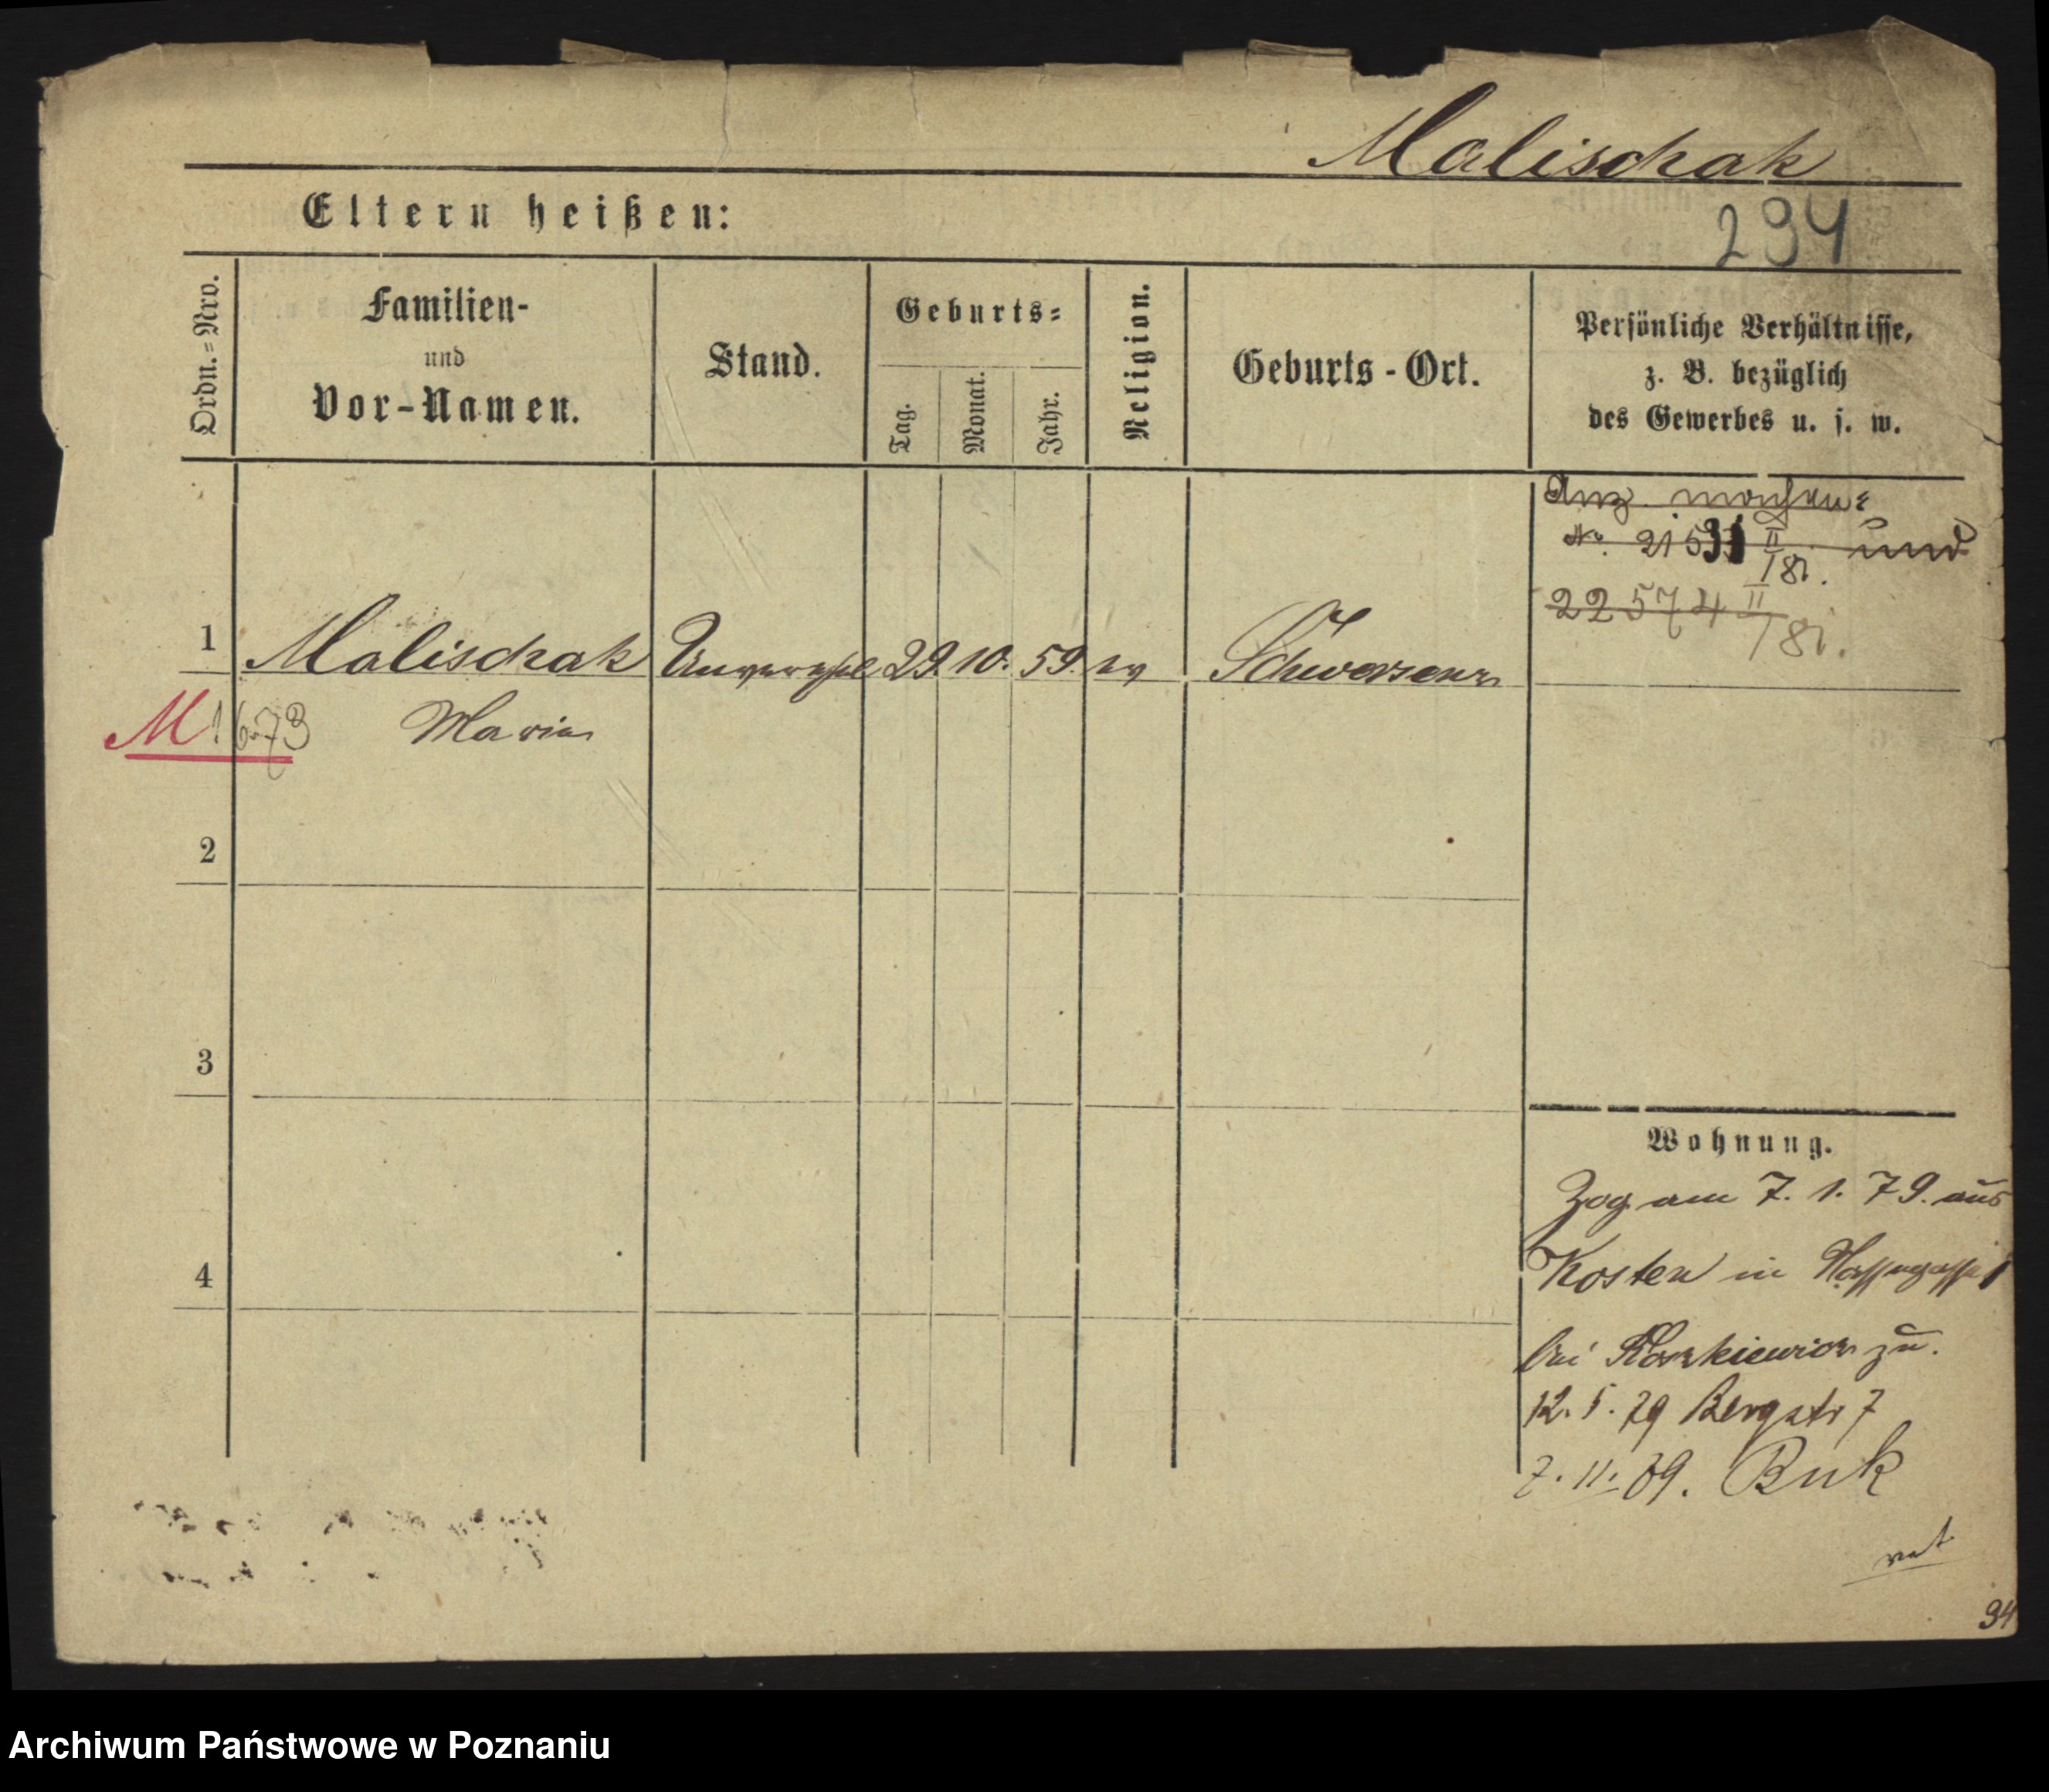 Malischak
Eltern heißen:
294
Ordn.=Nro.
Familien-
und
Vor-Namen.
Stand.
Geburts=
Tag.
Monat.
Jahr.
Religion.
Geburts-Ort.
Persönliche Verhältnisse,
z. B. bezüglich
des Gewerbes u. s. w.
No. 2153 II und
/81.
22574 II
/81.
1 Malischak Unverehel 29. 10. 59. ev Schwersenz
M 1673 Maria
2
3
4
Wohnung.
Zog am 7. 1. 79. aus
Kosten in
bei zu.
12. 5. 79 Bergstr 7
7. 11. 79. Buk
94
Archiwum Państwowe w Poznaniu